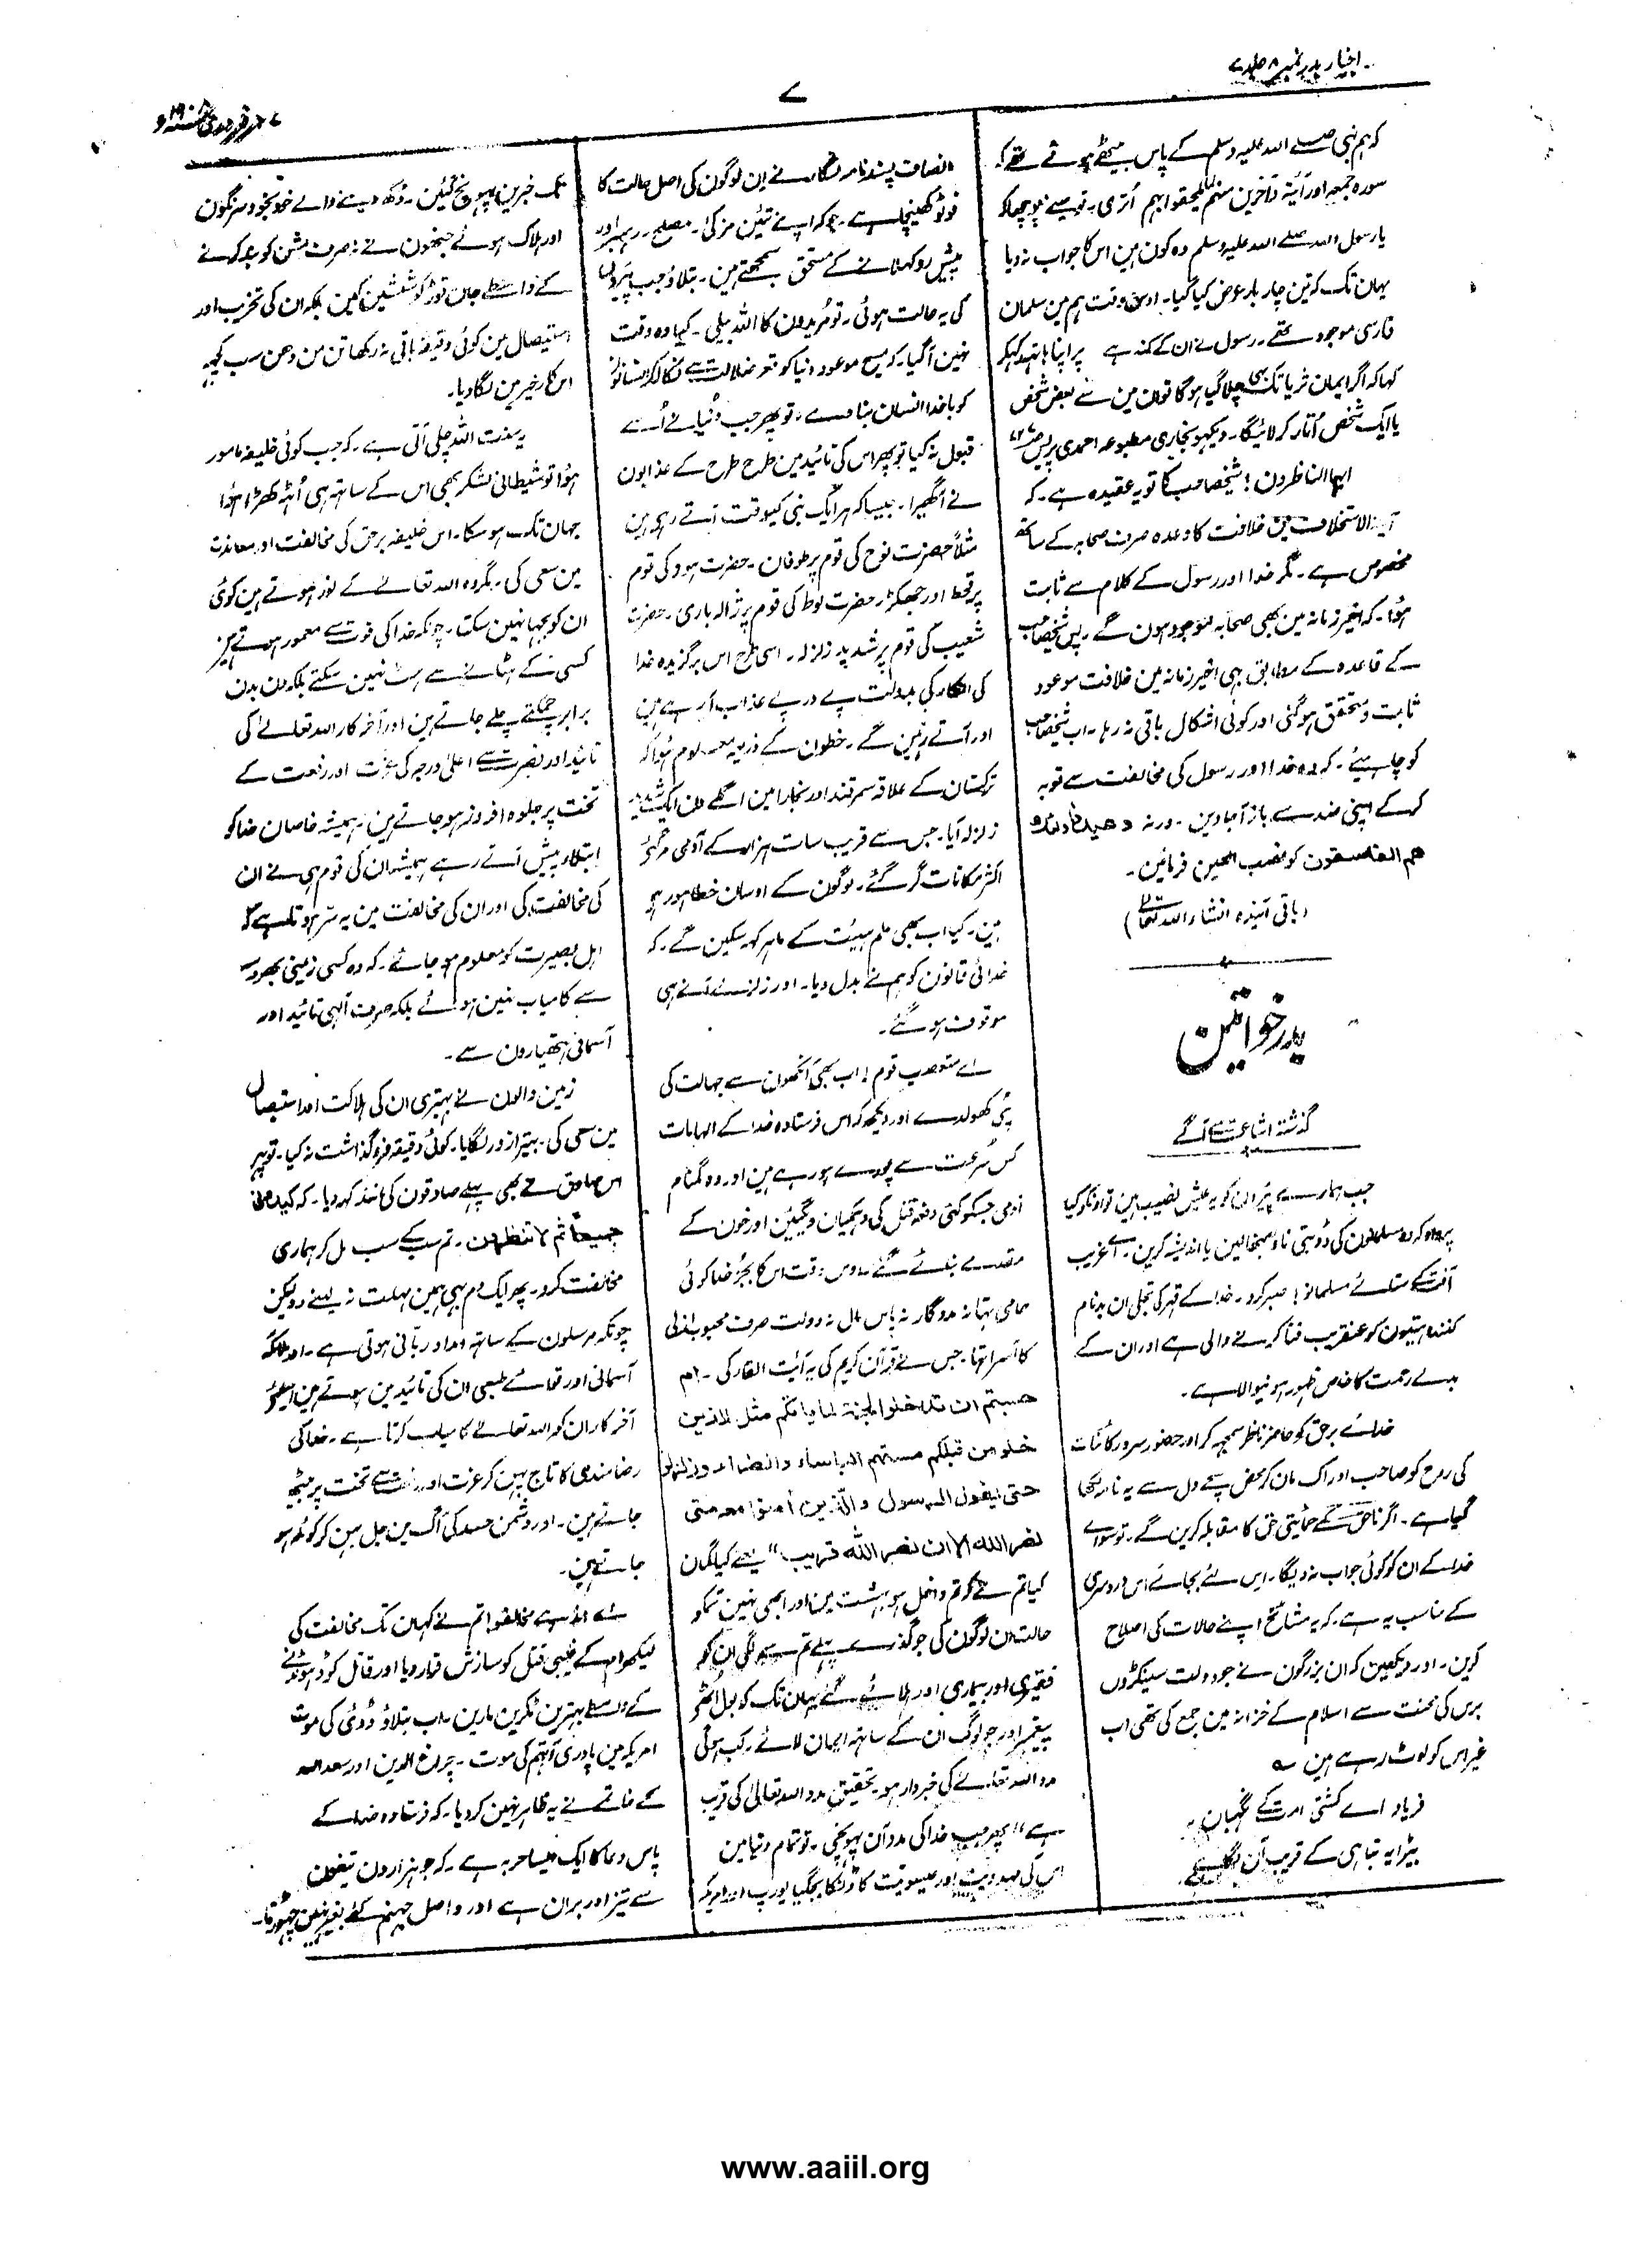 اخبار بدر نمبر ۸ جلد ۷
۷
۲۷ فروری ۱۹۰۸ء
کہ ہم نبی صلے اللہ علیہ وسلم کے پاس بیٹھے ہوئے تھے کہ
سورہ جمعہ اور آیۃ وآخرین منہم لما یلحقوا بہم اُتری۔ تو مینے پوچھا کہ
یا رسول اللہ صلے اللہ علیہ وسلم وہ کون ہین اس کا جواب نہ دیا
یہان تک کہ تین چار بار عرض کیا گیا۔ اوس وقت ہم مین سلمان
فارسی موجود تھے۔ رسول نے ان کے کندہے پر اپنا ہاتہہ رکہکر
کہا کہ اگر ایمان ثریا تک بہی چلا گیا ہو گا تو ان مین سے بعض شخص
یا ایک شخص اُتار کر لائیگا۔ دیکہو بخاری مطبوعہ احمدی پریس
ایہا الناظرون! شیخصاحب کا تو یہ عقیدہ ہے۔ کہ
آیۃ الاستخلاف مین خلافت کا وعدہ صرف صحابہ کے ساتھ
مخصوص ہے۔ مگر خدا اور رسول کے کلام سے ثابت
ہؤا۔ کہ اخیر زمانہ مین بھی صحابہ موجود ہون گے۔ پس شیخصاحب
کے قاعدہ کے مطابق ہی اخیر زمانہ مین خلافت موعود
ثابت و متحقق ہو گئی اور کوئی اشکال باقی نہ رہا۔ اب شیخصاحب
کو چاہیئے۔ کہ وہ خدا اور رسول کی مخالفت سے توبہ
کر کے اپنی ضد سے باز آجاوین۔ ورنہ
ھم الفاسقون کو نصب العین فرمائین۔
(باقی آئندہ انشاء اللہ تعالےٰ)
بدر خواتین
گذشتہ اشاعت سے آگے
جب ہمارے پیران کو یہ عیش نصیب ہین تو اونکو کیا
پرواہ کہ وہ مسلمانون کی ڈوبتی ناؤ سنبھالین یا اندیشہ کرین۔ اے غریب
آفت کے ستائے مسلمانو! صبر کرو۔ خدا کے قہر کی تجلی ان بدنام
کنندہ ہستیون کو عنقریب فنا کرنے والی ہے اور ان کے
بدلے رحمت کا خاص ظہور ہونیوالا ہے۔
خدائے برحق کو حاضر ناظر سمجہہ کر اور حضور سرور کائنات
کی روح کو صاحب ادراک مان کر محض سچے دل سے یہ نامہ لکھا
گیا ہے۔ اگر ناحق کے حمایتی حق کا مقابلہ کرین گے۔ تو سوائے
خدا کے ان کو کوئی جواب نہ دیگا۔ اس لئے بجائے اس دردسری
کے مناسب یہ ہے۔ کہ یہ مشائخ اپنے حالات کی اصلاح
کرین۔ اور دیکھین کہ ان بزرگون نے جو دولت سینکڑوں
برس کی محنت سے اسلام کے خزانہ مین جمع کی تھی اب
غیر اس کو لوٹ رہے ہین ؎
فریاد اے کشتی امت کے نگہبان
بیڑا یہ تباہی کے قریب آن لگا ہے
انصاف پسند نامہ نگار نے ان لوگون کی اصل حالت کا
فوٹو کھینچا ہے۔ جو کہ اپنے تئین مزکی۔ مصلح۔ رہبر اور
پیش رو کہلانے کے مستحق سمجھتے ہین۔ بتلاؤ جب پیرون
کی یہ حالت ہوئی۔ تو مریدون کا اللہ بیلی۔ کیا وہ وقت
نہین آگیا۔ کہ مسیح موعود دنیا کو قعر ضلالت سے نکالکر انسانون
کو باخدا انسان بناوے۔ تو پھر جب دُنیا نے اُسے
قبول نہ کیا تو پھر اس کی تائید مین طرح طرح کے عذابون
نے آگھیرا۔ جیسا کہ ہر ایک نبی کیوقت آتے رہے ہین
مثلاً حضرت نوح کی قوم پر طوفان۔ حضرت ہود کی قوم
پر قحط اور جھکڑ۔ حضرت لوط کی قوم پر ژالہ باری۔ حضرت
شعیب کی قوم پر شدید زلزلہ۔ اسی طرح اس برگزیدہ خدا
کی انکار کی بدولت پے در پے عذاب آ رہے ہین
اور آتے رہین گے۔ خطون کے ذریعہ معلوم ہؤا کہ
ترکستان کے علاقہ سمرقند اور بخارا مین اگلے دن ایک
زلزلہ آیا۔ جس سے قریب سات ہزار کے آدمی مر گئے
اکثر مکانات گر گئے۔ لوگون کے اوسان خطا ہو رہے
ہین۔ کیا اب بھی علم ہیئت کے ماہر کہہ سکین گے۔ کہ
خدائی قانون کو ہم نے بدل دیا۔ اور زلزلے آنے ہی
موقوف ہو گئے۔
اے متعصب قوم! اب بھی آنکھون سے جہالت کی
پٹی کھولدے اور دیکھ کہ اس فرستادہ خدا کے الہامات
کس سُرعت سے پورے ہو رہے ہین اور وہ گمنام
آدمی جسکو کئی دفعہ قتل کی دہمکیان دیگئین اور خون کے
مقدمے بنائے گئے۔ اوس وقت اس کا بجز خدا کوئی
حامی تہا نہ مددگار نہ پاس مال نہ دولت صرف محبوب ازلی
کا آسرا تھا۔ جس نے قرآن کریم کی یہ آیت القا کی۔ ام
حسبتم ان تدخلوا الجنۃ لما یاتکم مثل الذین
خلو من قبلکم مستہم الباساء والضراء وزلزلو
حتی یقول الرسول والذین اٰمنوا معہ متی
نصر اللہ الا ان نصر اللہ قریب" یعنے کیا گمان
کیا تم نے کہ تم داخل ہو بہشت مین اور ابھی نہین تمکو
حالت ان لوگون کی جو گذرے پہلے تم سے لگی ان کو
فقیری اور بیماری اور ہلائے گئے یہان تک کہ بول اٹھے
پیغمبر اور جو لوگ ان کے ساتھ ایمان لائے۔ کب ہوگی
مدد اللہ تعالےٰ کی خبردار ہو۔ تحقیق مدد اللہ تعالیٰ کی قریب
ہے" پھر جب خدا کی مدد آن پہونچی۔ تو تمام دنیا مین
اس کی مہدویت اور عیسویت کا ڈنکا بجگیا یورپ اور امریکہ
تک خبرین پہونچ گئین۔ دُکھ دینے والے خود بخود سرنگون
اور ہلاک ہوئے جنھون نے نہ صرف مشن کو بند کرنے
کے واسطے جان توڑ کوششین کین بلکہ ان کی تخریب اور
استیصال مین کوئی دقیقہ باقی نہ رکھا تن من دھن سب کچہہ
اس کار خیر مین لگا دیا۔
یہ سنت اللہ چلی آتی ہے۔ کہ جب کوئی خلیفہ مامور
ہؤا تو شیطانی لشکر بھی اس کے ساتھ ہی اُٹھہ کھڑا ہؤا
جہان تک ہو سکا۔ اس خلیفہ برحق کی مخالفت اور معاندت
مین سعی کی۔ مگر وہ اللہ تعالےٰ کے نور ہوتے ہین کوئی
ان کو بجہا نہین سکتا۔ چونکہ خدا کی قوت سے معمور ہوتے ہین
کسی کے ہٹانے سے ہٹ نہین سکتے بلکہ دن بدن
برابر چمکتے چلے جاتے ہین اور آخر کار اللہ تعالےٰ کی
تائید اور نصرت سے اعلیٰ درجہ کی عزت اور رفعت کے
تخت پر جلوہ افروز ہو جاتے ہین۔ ہمیشہ خاصان خدا کو
ابتلاء پیش آتے رہے ہمیشہ ان کی قوم ہی نے ان
کی مخالفت کی اور ان کی مخالفت مین یہ سر ہوتا ہے کہ
اہل بصیرت کو معلوم ہو جائے۔ کہ وہ کسی زمینی بھروسہ
سے کامیاب نہین ہوئے بلکہ صرف الٰہی تائید اور
آسمانی ہتھیارون سے۔
زمین والون نے بہتیری ان کی ہلاکت اور استیصال
مین سعی کی۔ بہتیرا زور لگایا۔ کوئی دقیقہ فروگذاشت نہ کیا۔ تو پھر
اس صادق نے بھی پہلے صادقون کی مانند کہہ دیا۔ کہ کیدونی
جمیعاً ثم لا تنظرون۔ تم سب کے سب مل کر ہماری
مخالفت کرو۔ پھر ایک دم بہی ہمین مہلت نہ لینے دو لیکن
چونکہ مرسلون کے ساتھ امداد ربانی ہوتی ہے۔ اور ملائکہ
آسمانی اور قوائے طبعی ان کی تائید مین ہوتے ہین اسلئے
آخر کار ان کو اللہ تعالےٰ کامیاب کرتا ہے۔ خدا کی
رضامندی کا تاج پہن کر عزت اور رفعت سے تخت پر بیٹھ
جاتے ہین۔ اور دشمن حسد کی آگ مین جل بہن کر کوئلہ ہو
جاتے ہین۔
اے اندہے مخالفو! تم نے کہان تک مخالفت کی
لیکھرام کے غیبی قتل کو سازش قرار دیا اور قاتل کو ڈہونڈنے
کے واسطے بہترین ٹکرین مارین۔ اب بتلاؤ ڈوئی کی موت
امریکہ مین پادری آتہم کی موت۔ چراغ الدین اور سعد اللہ
کے خاتمے نے یہ ظاہر نہین کر دیا۔ کہ فرستادہ خدا کے
پاس دعا کا ایک ایسا حربہ ہے۔ کہ جو ہزارون تیغون
سے تیز اور بران ہے اور واصل جہنم کئے بغیر نہین چھوڑتا۔
www.aaiil.org